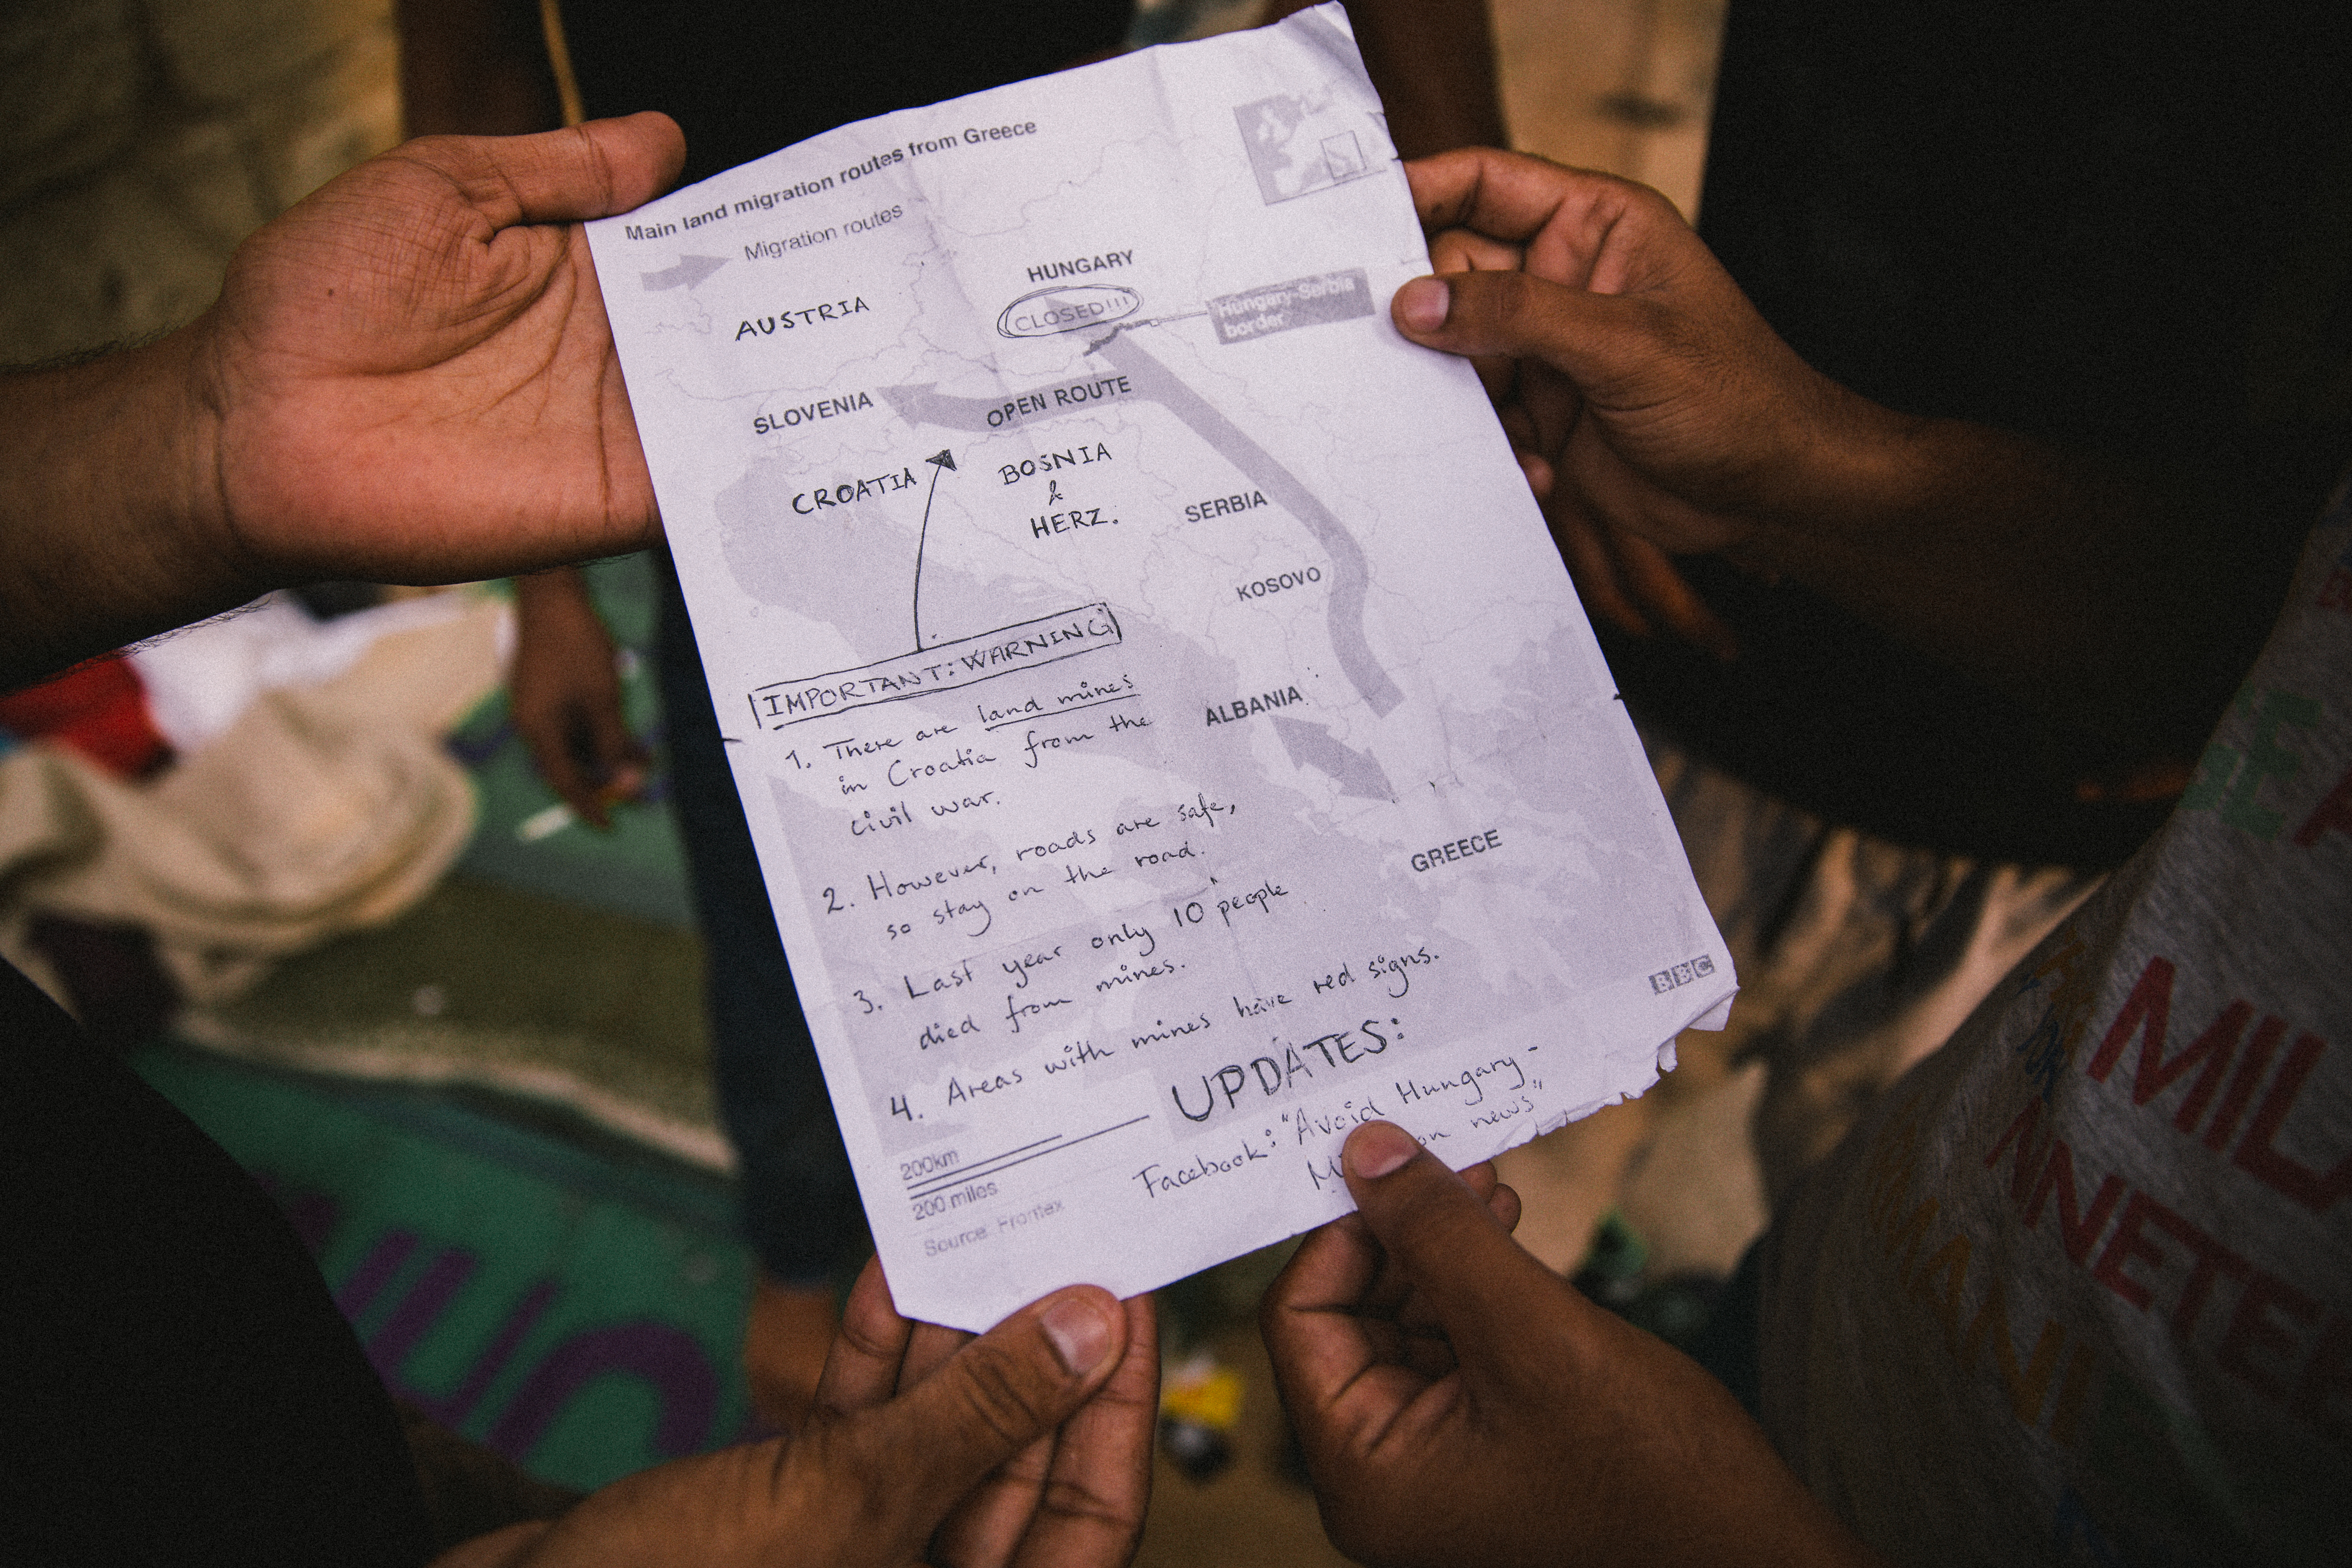 Main land migration routes from Greece
Migration routes
HUNGARY
CLOSED!!!
Hungary-Serbia
border
AUSTRIA
SLOVENIA
OPEN ROUTE
CROATIA
BOSNIA
&
HERZ.
SERBIA
KOSOVO
IMPORTANT: WARNING
1. There are land mines
in Croatia from the
civil war.
ALBANIA
2. However, roads are safe,
so stay on the road.
GREECE
3. Last year only 10 people
died from mines.
4. Areas with mines have red signs.
BBC
UPDATES:
Facebook: "Avoid Hungary-
news"
200km
200 miles
Source: Frontex
MIL